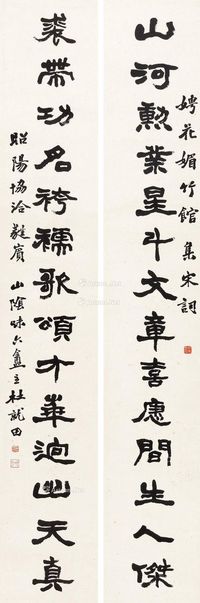 娉花媚竹館集宋詞
山河勳業星斗文章喜應間生人傑
裘帶功名袴襦歌頌才華迥出天真
昭陽協洽蕤賓山陰味六盦主杜就田